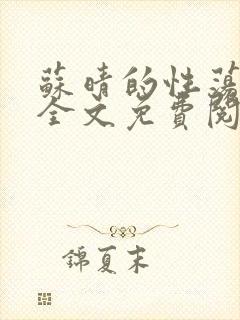 蘇晴的性蕩
全文免費閱
錦夏末